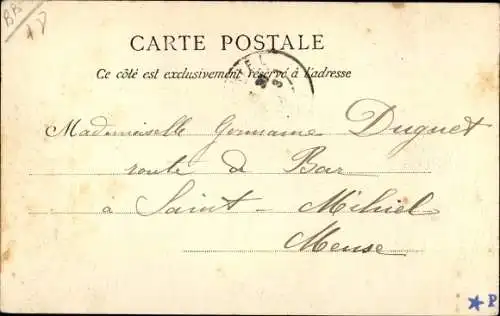 CARTE POSTALE
Ce côté est exclusivement réservé à l'adresse
Mademoiselle Germaine Duguet
route de Bar
à Saint-Mihiel
Meuse
P